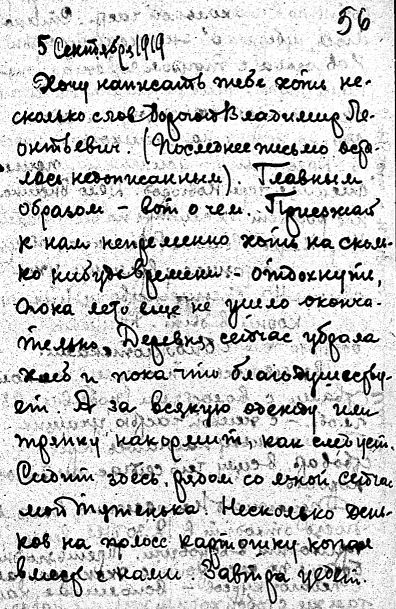 56
5 Сентября 1919
Хочу написать тебе хоть не-
сколько слов дорогой Владимир Ле-
онтьевич. (Последнее письмо оста-
лось недописанным). Главным
образом – вот о чем. Приезжай
к нам непременно хоть на сколь-
ко нибудь времени – отдохнуть,
пока лето еще не ушло оконча-
тельно. Деревня сейчас убрала
хлеб и пока что благодушеству-
ет. А за всякую одежду или
тряпку накормит, как следует.
Сидит здесь, рядом со мной сейчас
мой Тутенька. Несколько день-
ков на картошку копал
вместе с нами. Завтра уедет.